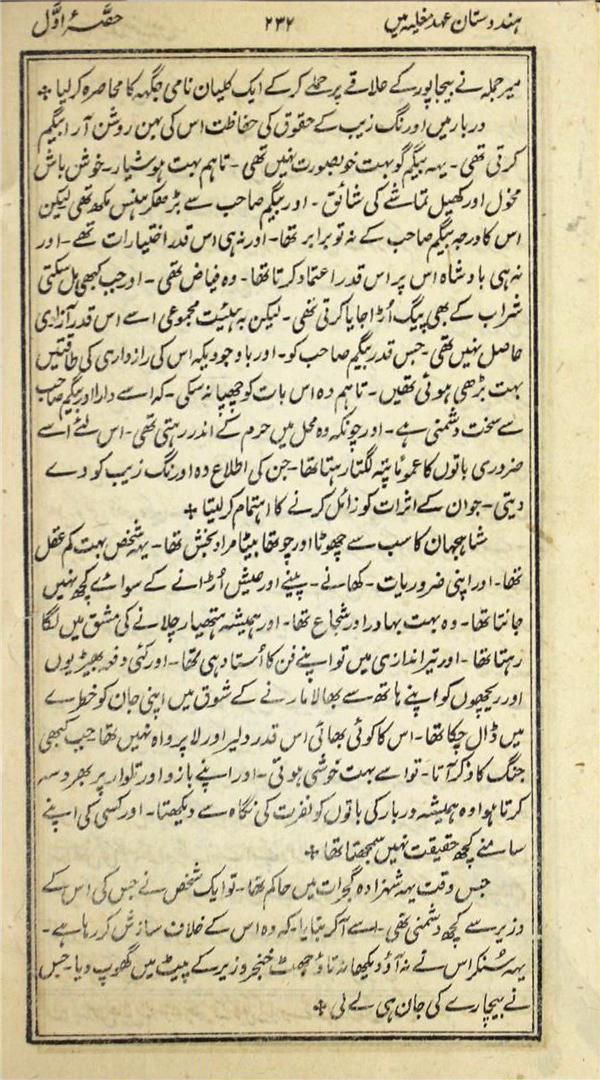 ہندوستان عہد مغلیہ میں ۲۳۲ حصۂ اوّل
میر جملہ نے بیجاپور کے علاقے پر حملے کر کے ایک کلیان نامی جگہہ کا محاصرہ کرلیا +
دربار میں اورنگ زیب کے حقوق کی حفاظت اس کی بہن روشن آرا بیگم
کرتی تھی ۔ یہہ بیگم گو بہت خوبصورت نہیں تھی ۔ تاہم بہت ہوشیار ۔ خوش باش
مخول اور کھیل تماشے کی شائق ۔ اور بیگم صاحب سے بڑھکر ہنس مکھ تھی لیکن
اس کا درجہ بیگم صاحب کے نہ تو برابر تھا ۔ اور نہ ہی اس قدر اختیارات تھے ۔ اور
نہ ہی بادشاہ اس پر اس قدر اعتماد کرتا تھا ۔ وہ فیاض تھی ۔ اور جب کبھی مل سکتی
شراب کے بھی پیگ اُڑا جایا کرتی تھی ۔ لیکن بہ ہیئیت مجموعی اسے اس قدر آزادی
حاصل نہیں تھی ۔ جس قدر بیگم صاحب کو ۔ اور باوجودیکہ اس کی رازداری کی طاقتیں
بہت بڑھی ہوئی تھیں ۔ تاہم وہ اس بات کو چھپا نہ سکی ۔ کہ اسے دارا اور بیگم صاحب
سے سخت دشمنی ہے ۔ اور چونکہ وہ محل میں حرم کے اندر رہتی تھی ۔ اس لئے اسے
ضروری باتوں کا عموماً پتہ لگتا رہتا تھا ۔ جن کی اطلاع وہ اورنگ زیب کو دے
دیتی ۔ جو ان کے اثرات کو زائل کرنے کا اہتمام کرلیتا +
شاہجہان کا سب سے چھوٹا اور چوتھا بیٹا مراد بخش تھا ۔ یہہ شخص بہت کم عقل
تھا ۔ اور اپنی ضروریات ۔ کھانے ۔ پینے اور عیش اُڑانے کے سوائے کچھ نہیں
جانتا تھا ۔ وہ بہت بہادر اور شجاع تھا ۔ اور ہمیشہ ہتھیار چلانے کی مشق میں لگا
رہتا تھا ۔ اور تیر اندازی میں تو اپنے فن کا اُستاد ہی تھا ۔ اور کئی دفعہ بھیڑیوں
اور ریچھوں کو اپنے ہاتھ سے بھالا مارنے کے شوق میں اپنی جان کو خطرے
میں ڈال چکا تھا ۔ اس کا کوئی بھائی اس قدر دلیر اور لا پرواہ نہیں تھا جب کبھی
جنگ کا ذکر آتا ۔ تو اسے بہت خوشی ہوتی ۔ اور اپنے بازو اور تلوار پر بھروسہ
کرتا ہوا وہ ہمیشہ دربار کی باتوں کو نفرت کی نگاہ سے دیکھتا ۔ اور کسی کی اپنے
سامنے کچھ حقیقت نہیں سمجھتا تھا +
جس وقت یہہ شہزادہ گجرات میں حاکم تھا ۔ تو ایک شخص نے جس کی اس کے
وزیر سے کچھ دشمنی تھی ۔ اسے آکر بتایا ۔ کہ وہ اس کے خلاف سازش کر رہا ہے ۔
یہہ سُنکر اس نے نہ آؤ دیکھا نہ تاؤ جھٹ خنجر وزیر کے پیٹ میں گھوپ دیا ۔ جس
نے بیچارے کی جان ہی لے لی +